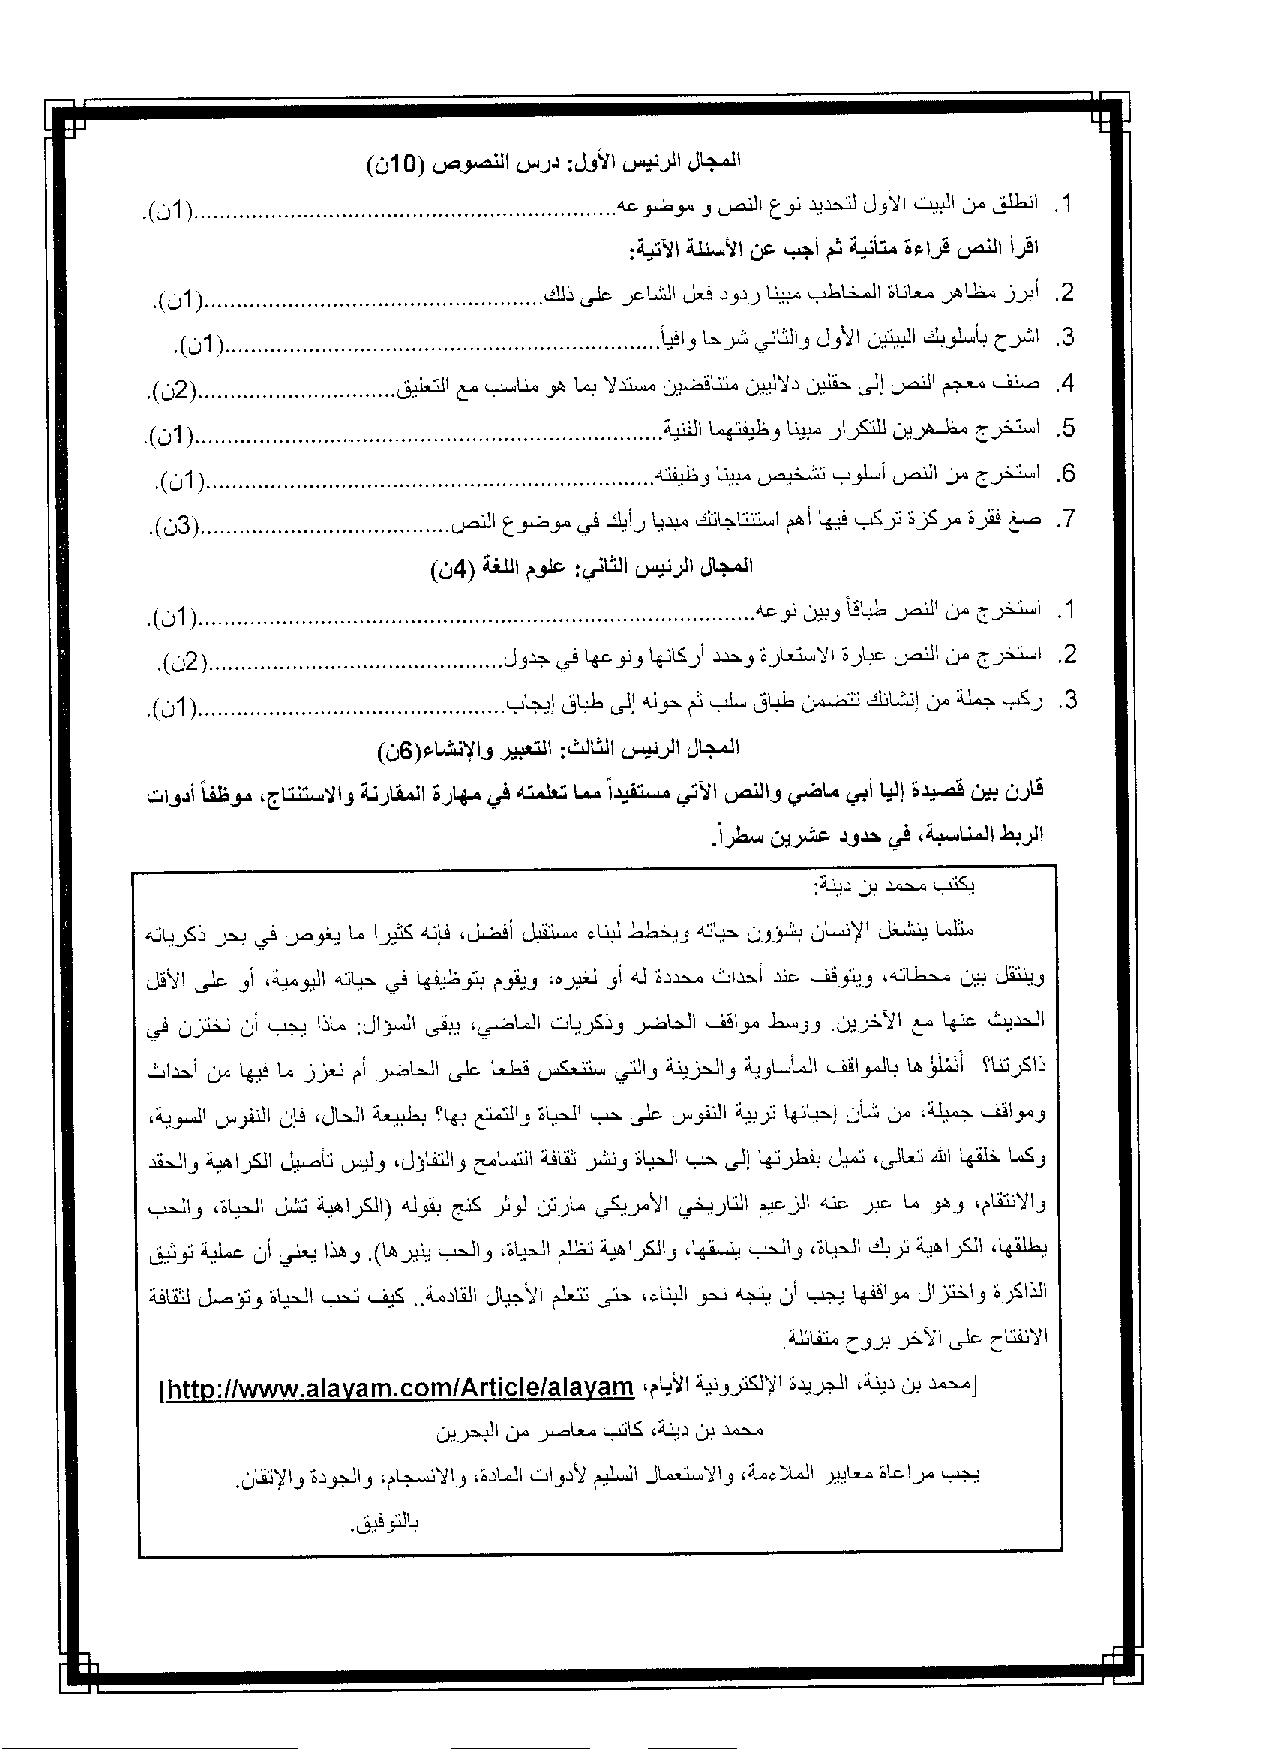 المجال الرئيس الأول: درس النصوص (10ن)
1. انطلق من البيت الأول لتحديد نوع النص و موضوعه..................................................................(1ن).
اقرأ النص قراءة متأنية ثم أجب عن الأسئلة الآتية:
2. أبرز مظاهر معاناة المخاطب مبينا ردود فعل الشاعر على ذلك....................................................(1ن).
3. اشرح بأسلوبك البيتين الأول والثاني شرحا وافياً...................................................................(1ن).
4. صنف معجم النص إلى حقلين دلاليين متناقضين مستدلا بما هو مناسب مع التعليق...............................(2ن).
5. استخرج مظهرين للتكرار مبينا وظيفتهما الفنية........................................................................(1ن).
6. استخرج من النص أسلوب تشخيص مبينا وظيفته.....................................................................(1ن).
7. صغ فقرة مركزة تركب فيها أهم استنتاجاتك مبديا رأيك في موضوع النص......................................(3ن).
المجال الرئيس الثاني: علوم اللغة (4ن)
1. استخرج من النص طباقاً وبين نوعه......................................................................................(1ن).
2. استخرج من النص عبارة الاستعارة وحدد أركانها ونوعها في جدول.............................................(2ن).
3. ركب جملة من إنشائك تتضمن طباق سلب ثم حوله إلى طباق إيجاب...............................................(1ن).
المجال الرئيس الثالث: التعبير والإنشاء(6ن)
قارن بين قصيدة إليا أبي ماضي والنص الآتي مستفيداً مما تعلمته في مهارة المقارنة والاستنتاج، موظفاً أدوات
الربط المناسبة، في حدود عشرين سطراً.
يكتب محمد بن دينة:
مثلما ينشغل الإنسان بشؤون حياته ويخطط لبناء مستقبل أفضل، فإنه كثيرا ما يغوص في بحر ذكرياته
وينتقل بين محطاته، ويتوقف عند أحداث محددة له أو لغيره، ويقوم بتوظيفها في حياته اليومية، أو على الأقل
الحديث عنها مع الآخرين. ووسط مواقف الحاضر وذكريات الماضي، يبقى السؤال: ماذا يجب أن نختزن في
ذاكرتنا؟ أنملؤها بالمواقف المأساوية والحزينة والتي ستنعكس قطعا على الحاضر أم نعزز ما فيها من أحداث
ومواقف جميلة، من شأن إحيائها تربية النفوس على حب الحياة والتمتع بها؟ بطبيعة الحال، فإن النفوس السوية،
وكما خلقها الله تعالى، تميل بفطرتها إلى حب الحياة ونشر ثقافة التسامح والتفاؤل، وليس تأصيل الكراهية والحقد
والانتقام، وهو ما عبر عنه الزعيم التاريخي الأمريكي مارتن لوثر كنج بقوله (الكراهية تشل الحياة، والحب
يطلقها، الكراهية تربك الحياة، والحب ينسقها، والكراهية تظلم الحياة، والحب ينيرها). وهذا يعني أن عملية توثيق
الذاكرة واختزال مواقفها يجب أن يتجه نحو البناء، حتى تتعلم الأجيال القادمة.. كيف تحب الحياة وتؤصل لثقافة
الانفتاح على الآخر بروح متفائلة.
[محمد بن دينة، الجريدة الإلكترونية الأيام، http://www.alayam.com/Article/alayam]
محمد بن دينة، كاتب معاصر من البحرين
يجب مراعاة معايير الملاءمة، والاستعمال السليم لأدوات المادة، والانسجام، والجودة والإتقان.
بالتوفيق.